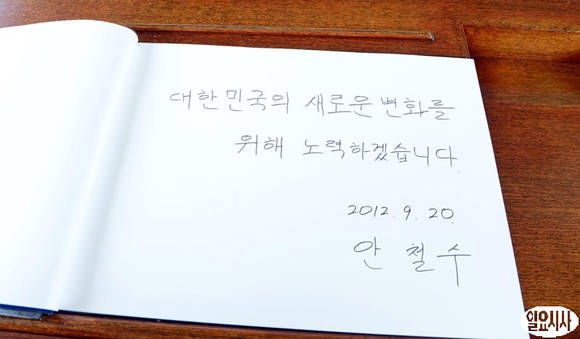 대한민국의 새로운 변화를
위해 노력하겠습니다
2012. 9. 20.
안 철 수
일요시사